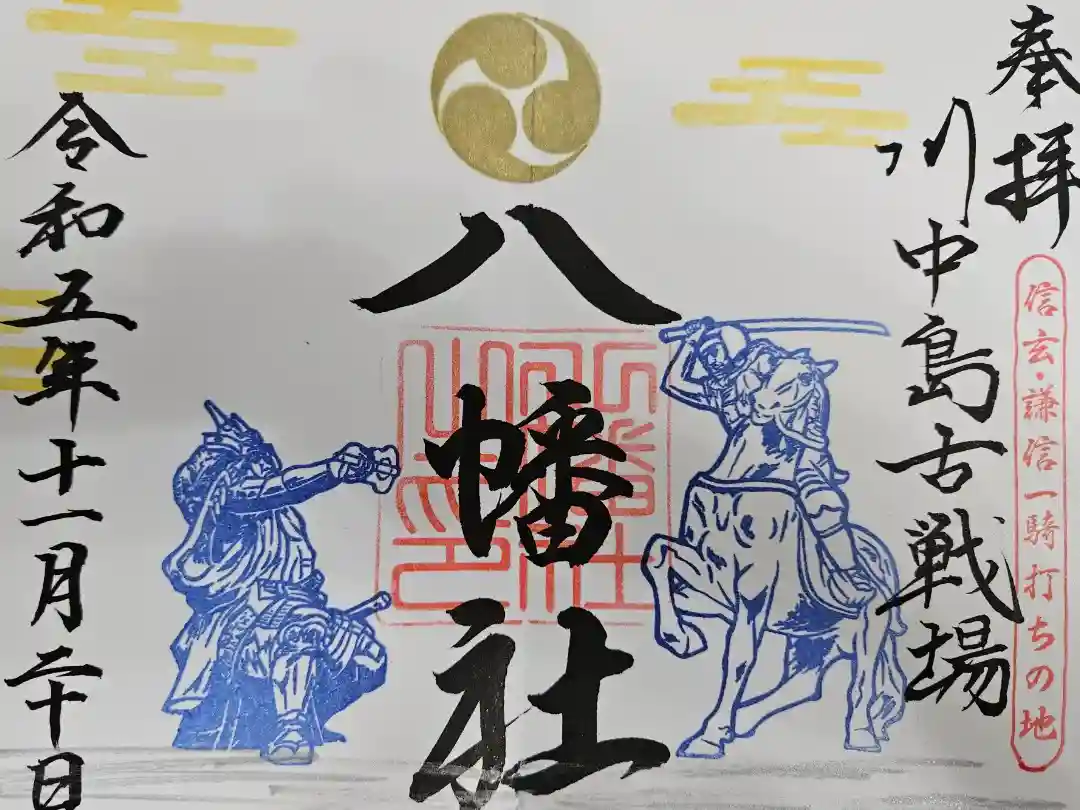 奉拝
川中島古戦場
信玄・謙信一騎打ちの地
八幡社
令和五年十一月二十日